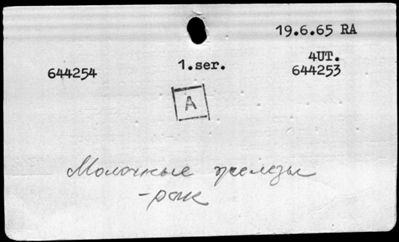 19.6.65 RA
1.ser. 4UT.
644254 644253
A
Молочные железы
-рак